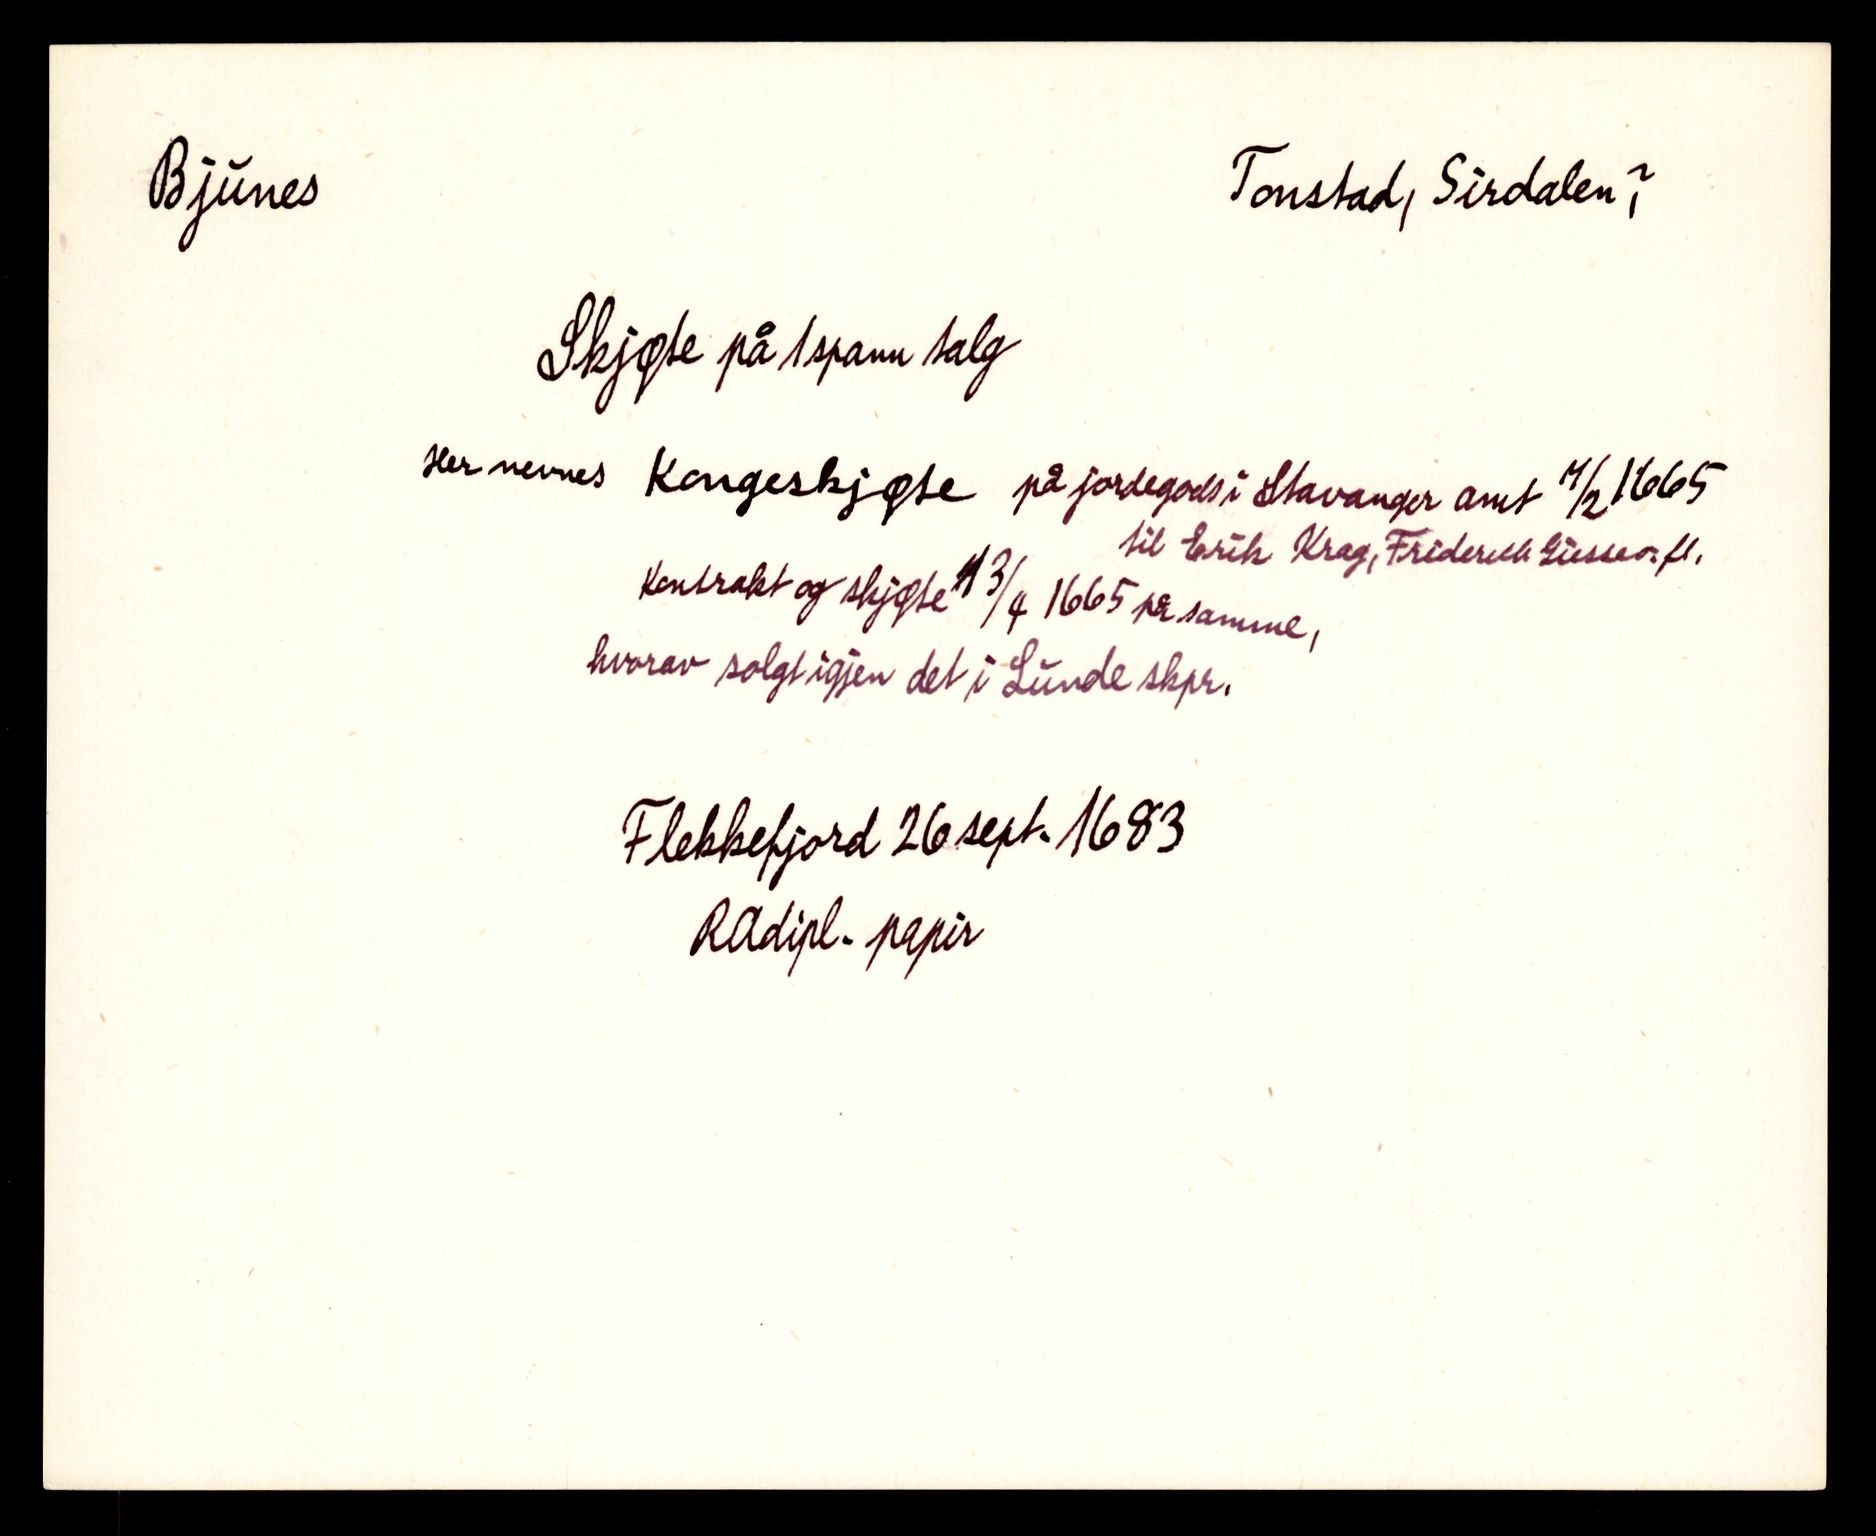 Bjunes
Tonstad, Sirdalen?
Skjøte på 1 spann talg
Her nevnes Kongeskjøte på jordegods i Stavanger amt /2 1665
til Erik Krag, Friderich Giese o. fl.
Kontrakt og skjøte 13/4 1665 på samme,
hvorav solgt igjen det i Lunde skpr.
Flekkefjord 26 sept. 1683
RA dipl. papir